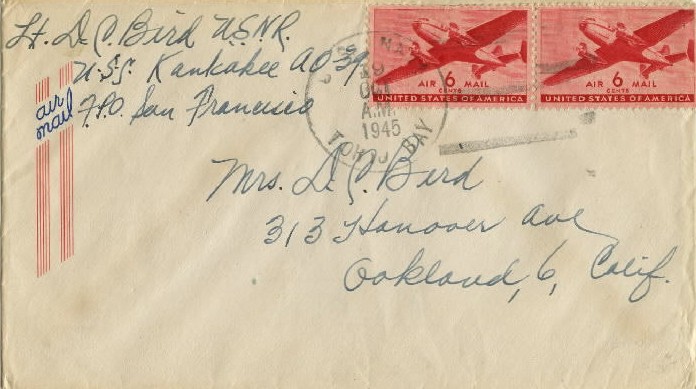 Lt. D. C. Bird U.S.N.R.
U.S.S. Kankakee AO 39
F.P.O. San Francisco
air
mail
U.S. NA
19
OCT
A.M.
1945
TOKYO BAY
AIR 6 MAIL
CENTS
UNITED STATES OF AMERICA
AIR 6 MAIL
CENTS
UNITED STATES OF AMERICA
Mrs. D. C. Bird
313 Hanover Ave
Oakland, 6, Calif.